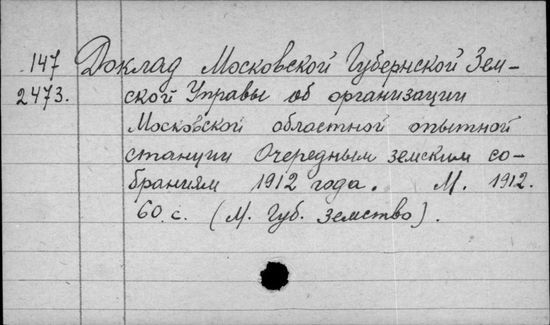 147 Доклад Московской Губернской Зем-
2473. ской Управы об организации
Московской областной опытной
станции Очередным земским со-
браниям 1912 года. М. 1912.
60 с. (М. Губ. Земство).